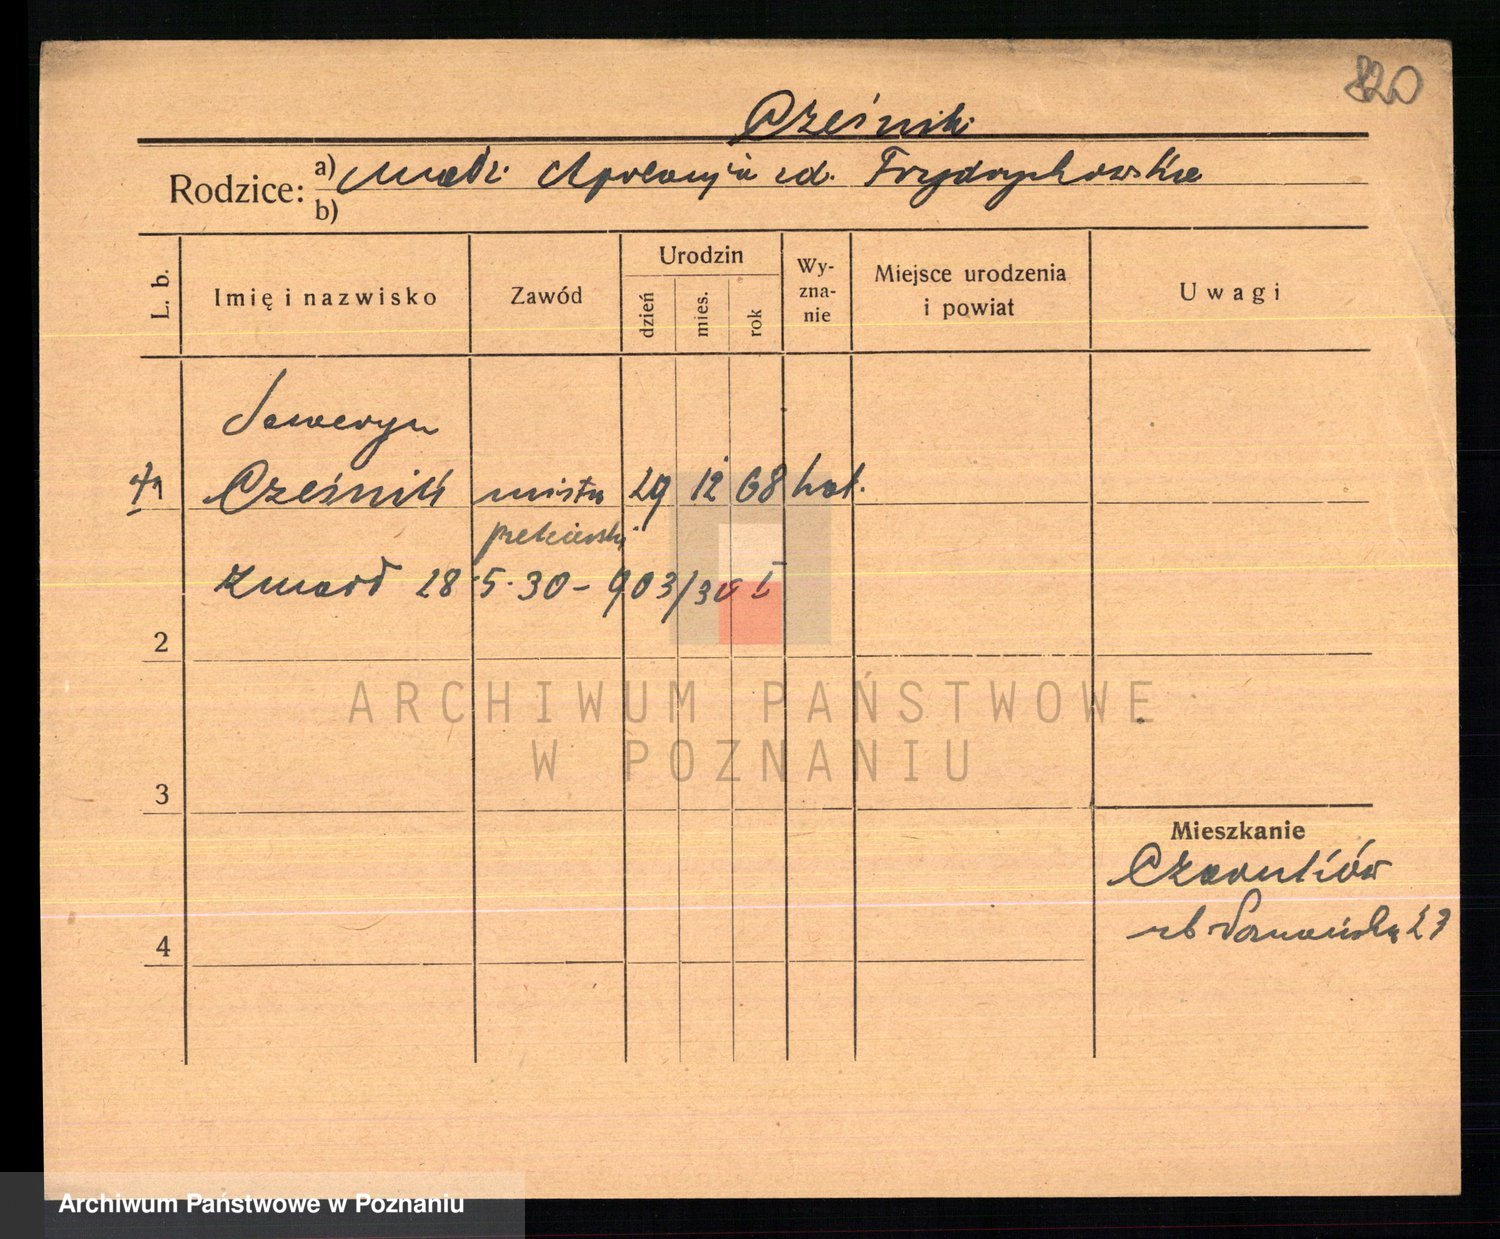 820
Cześnik
Rodzice: a) Małż. Apolonja zd. Frydrychowska
b)
L. b.
Imię i nazwisko
Zawód
Urodzin
dzień
mies.
rok
Wy-
zna-
nie
Miejsce urodzenia
i powiat
Uwagi
Seweryn
†1 Cześnik mistrz 29 12 68 kat.
piekarski
zmarł 28.5.30 - 903/30 I
2
ARCHIWUM PAŃSTWOWE
W POZNANIU
3
Mieszkanie
Czarnków
Poznańska 27
4
Archiwum Państwowe w Poznaniu